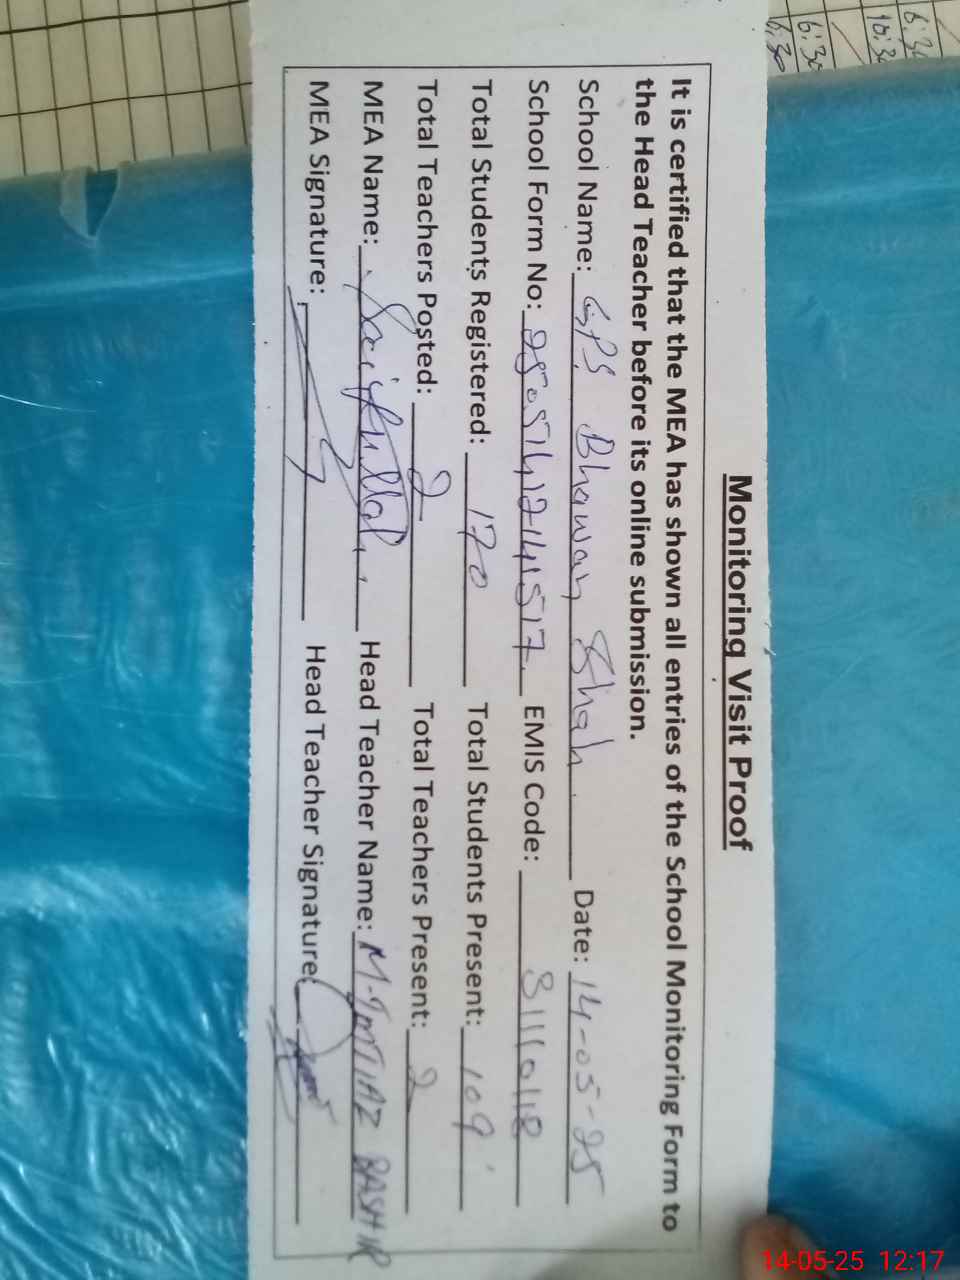 Monitoring Visit Proof
It is certified that the MEA has shown all entries of the School Monitoring Form to
the Head Teacher before its online submission.
School Name: GPS Bhawan Shah Date: 14-05-25
School Form No: 25051412141517 EMIS Code: 31110118
Total Students Registered: 170 Total Students Present: 109
Total Teachers Posted: 2 Total Teachers Present: 2
MEA Name: Saifullah Head Teacher Name: M-IMTIAZ BASHIR
MEA Signature: Head Teacher Signature:
6:30
10:30
6:30
6:30
14-05-25 12:17